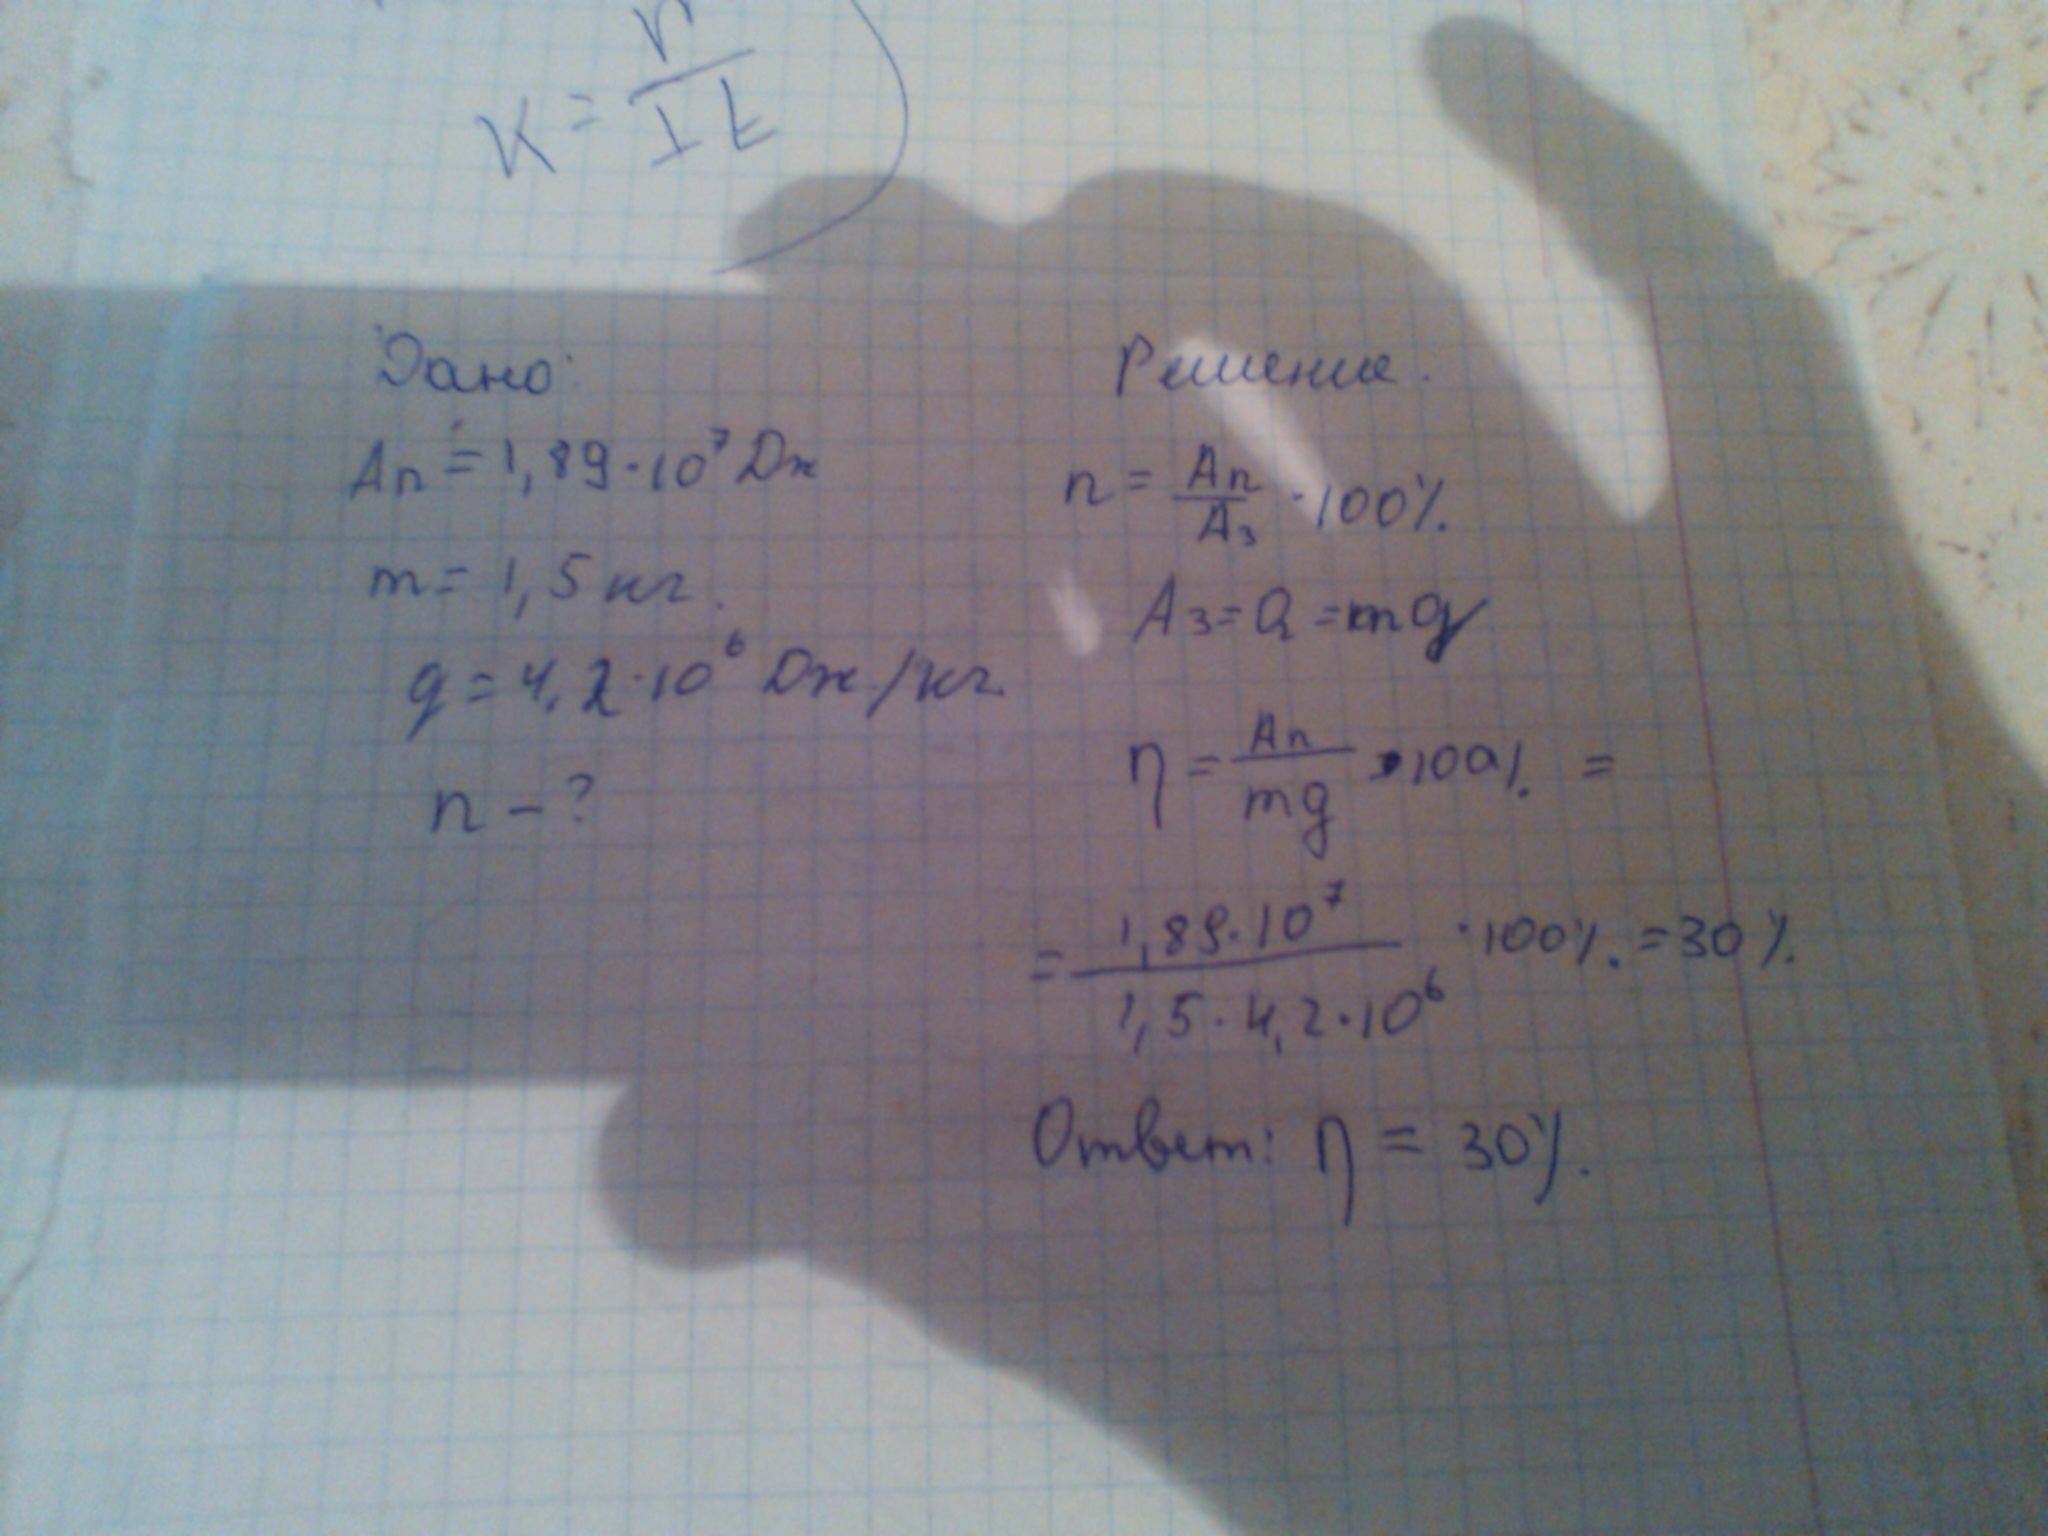 K = n / It
Дано:
Aп = 1,89·10⁷ Дж
m = 1,5 кг.
q = 4,2·10⁶ Дж/кг
n – ?
Решение.
n = Aп / Aз · 100%
Aз = Q = mq
η = Aп / mq · 100% =
= 1,89·10⁷ / 1,5·4,2·10⁶ · 100% = 30%
Ответ: η = 30%